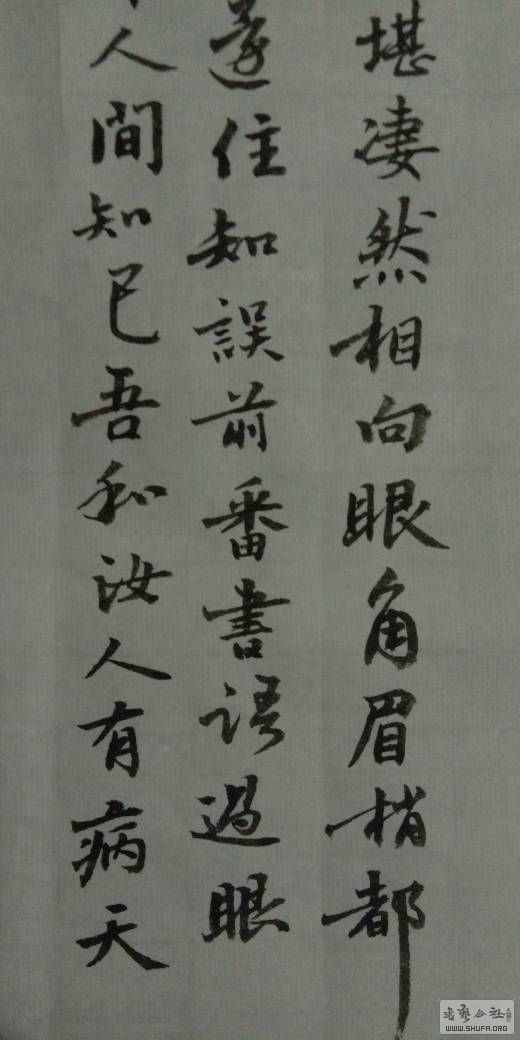 堪凄然相向眼角眉梢都
還住知誤前番書語過眼
人間知已吾和汝人有病天
書藝公社
WWW.SHUFA.ORG